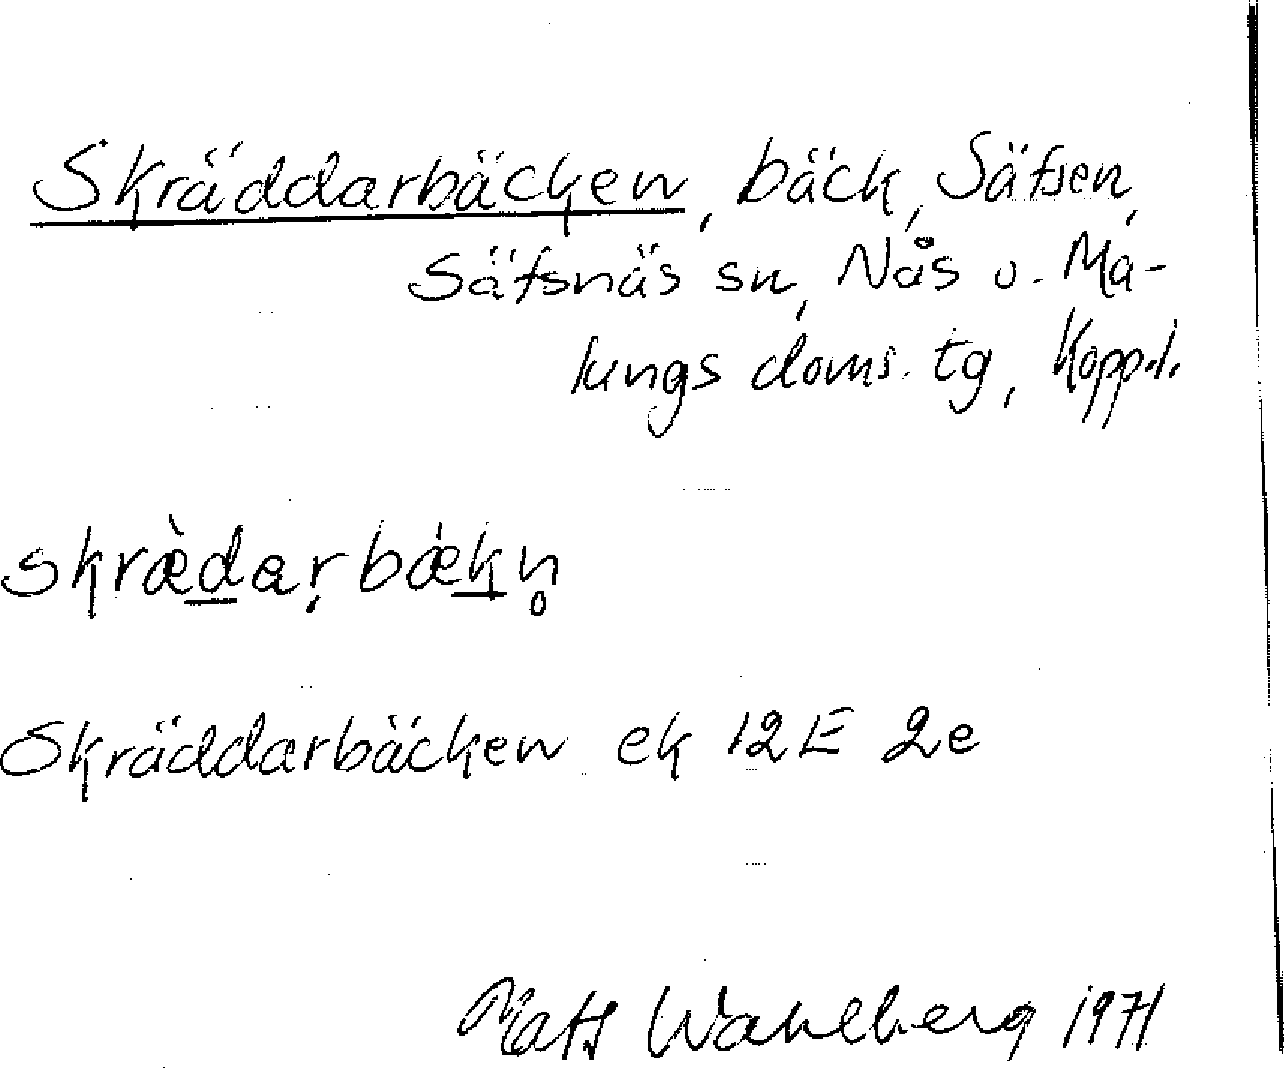 Skräddarbäcken, bäck, Säfsen,
Säfsnäs sn, Nås o. Ma-
lungs doms. tg, Kopp.l.
skræ̀daṛbǽkn̥
Skräddarbäcken ek 12E 2e
Mats Wahlberg 1971